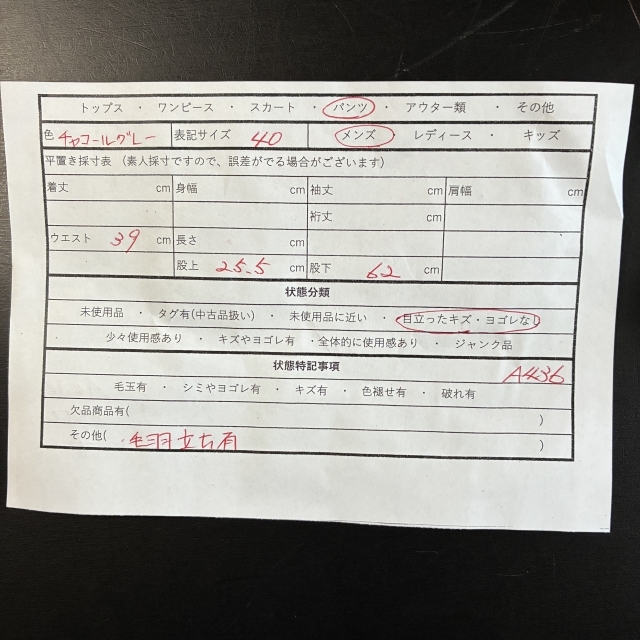 トップス ・ ワンピース ・ スカート ・ パンツ ・ アウター類 ・ その他
色 チャコールグレー 表記サイズ 40 メンズ ・ レディース ・ キッズ
平置き採寸表 (素人採寸ですので、誤差がでる場合がございます)
着丈 cm 身幅 cm 袖丈 cm 肩幅 cm
裄丈 cm
ウエスト 39 cm 長さ cm
股上 25.5 cm 股下 62 cm
状態分類
未使用品 ・ タグ有(中古品扱い) ・ 未使用品に近い ・ 目立ったキズ・ヨゴレなし
・ 少々使用感あり ・ キズやヨゴレ有 ・全体的に使用感あり ・ ジャンク品
状態特記事項 A436
毛玉有 ・ シミやヨゴレ有 ・ キズ有 ・ 色褪せ有 ・ 破れ有
欠品商品有( )
その他( 毛羽立ち有 )